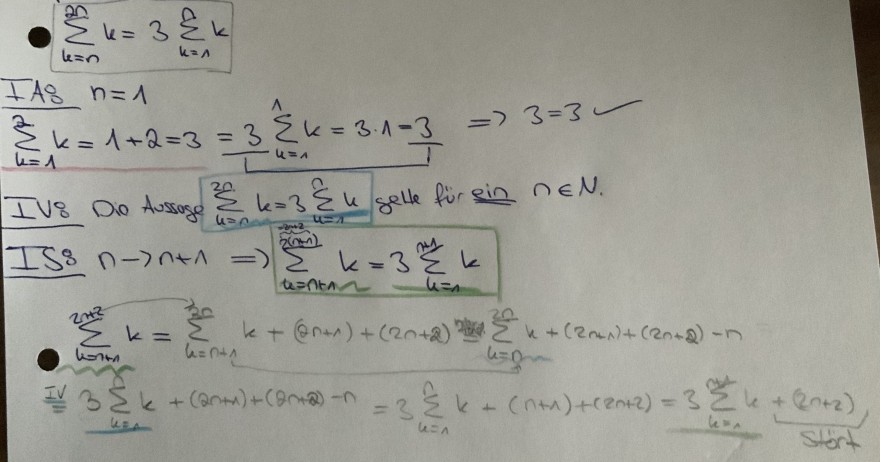 ∑_{k=n}^{2n} k = 3 ∑_{k=1}^{n} k
IA: n=1
∑_{k=1}^{2} k = 1+2=3 = 3 ∑_{k=1}^{1} k = 3·1=3 => 3=3 ✓
IV: Die Aussage ∑_{k=n}^{2n} k=3 ∑_{k=1}^{n} k gelte für ein n∈N.
2n+2
IS: n->n+1 => ∑_{k=n+1}^{2(n+1)} k = 3 ∑_{k=1}^{n+1} k
∑_{k=n+1}^{2n+2} k = ∑_{k=n+1}^{2n} k + (2n+1)+(2n+2) = ∑_{k=n}^{2n} k +(2n+1)+(2n+2)-n
IV = 3 ∑_{k=1}^{n} k +(2n+1)+(2n+2)-n = 3 ∑_{k=1}^{n} k + (n+1)+(2n+2) = 3 ∑_{k=1}^{n+1} k +(2n+2)
stört